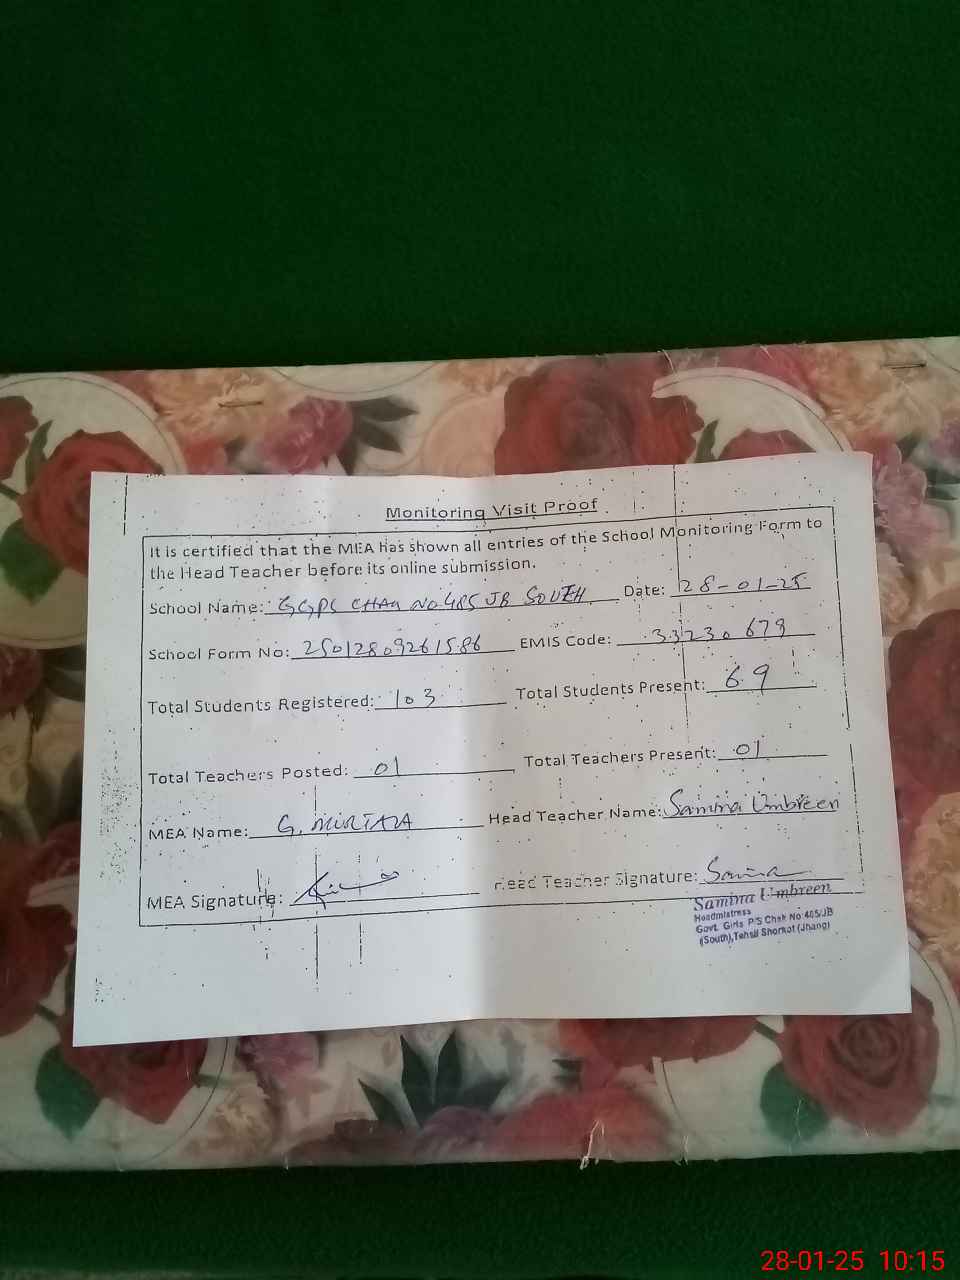 Monitoring Visit Proof
It is certified that the MEA has shown all entries of the School Monitoring Form to
the Head Teacher before its online submission.
School Name: GGPS CHAK NO.485 JB SOUTH Date: 28-01-25
School Form No: 25012809261586 EMIS Code: 33230679
Total Students Registered: 103 Total Students Present: 69
Total Teachers Posted: 01 Total Teachers Present: 01
MEA Name: G. MURTAZA Head Teacher Name: Samina Umbreen
MEA Signature: Head Teacher Signature: Samina
Samina Umbreen
Headmistress
Govt. Girls P/S Chak No 485/JB
(South), Tehsil Shorkot (Jhang)
28-01-25 10:15